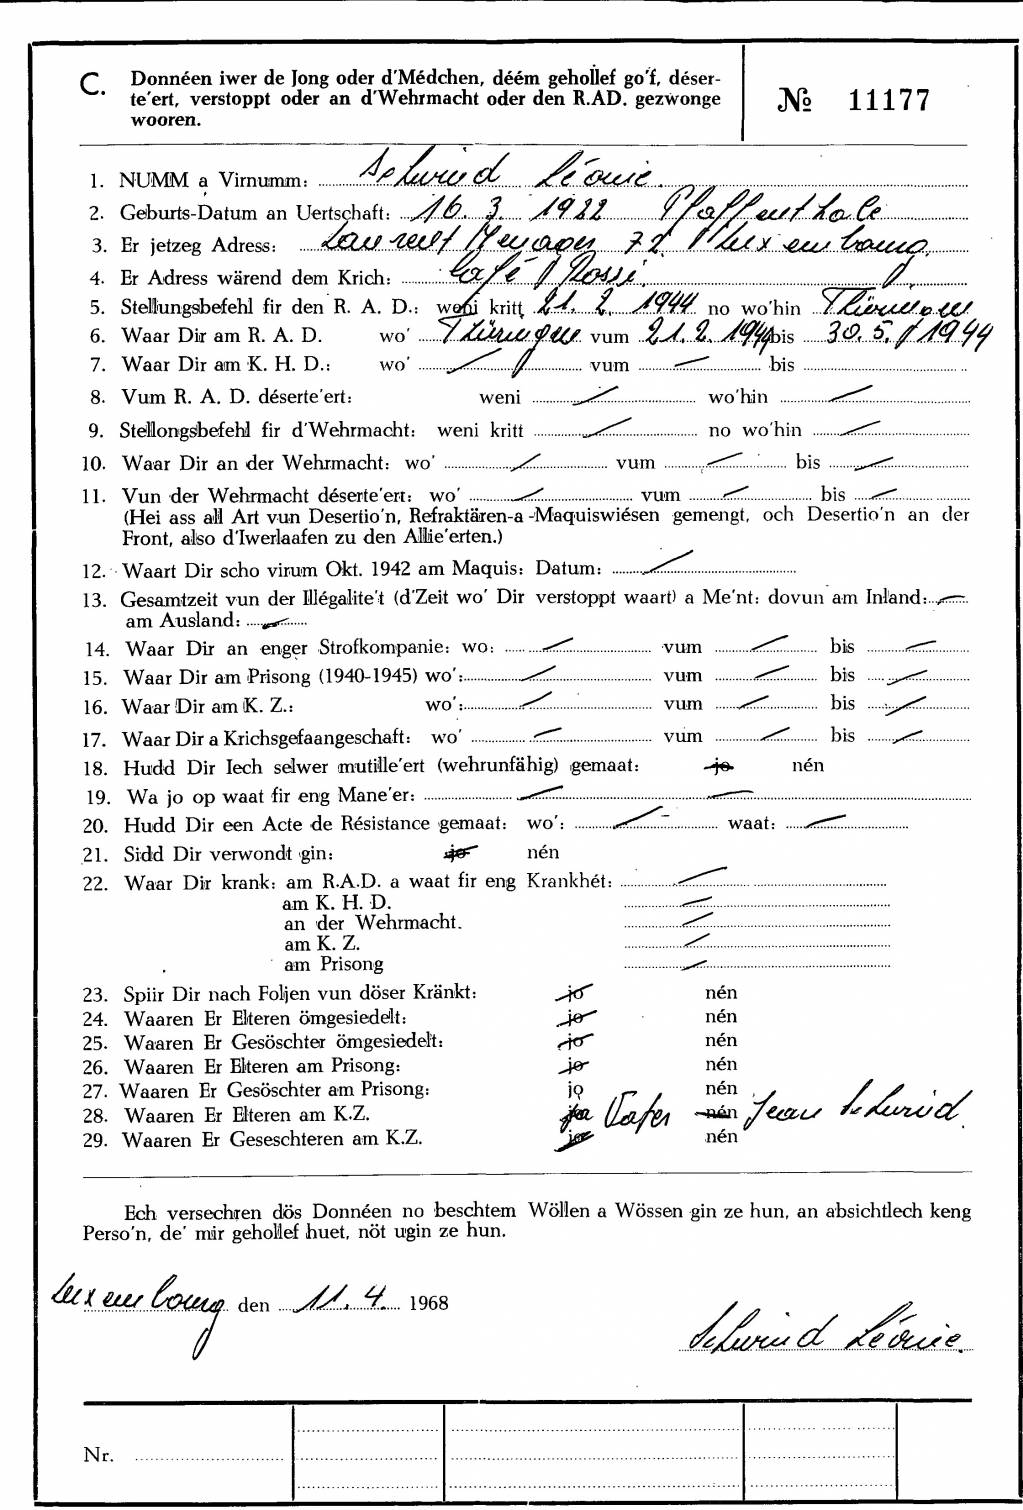 C. Donnéen iwer de Jong oder d'Médchen, déém gehollef go'f, déser-
te'ert, verstoppt oder an d'Wehrmacht oder den R.AD. gezwonge
wooren.
№ 11177
1. NUMM a Virnumm: Schwind Léonie.
2. Geburts-Datum an Uertschaft: 16. 3. 1922 Pfaffenthal
3. Er jetzeg Adress: Laurent Menager 72 Luxembourg.
4. Er Adress wärend dem Krich: Café Rossi.
5. Stellungsbefehl fir den R. A. D.: weni kritt 21. 2. 1944 no wo'hin Thüringen
6. Waar Dir am R. A. D. wo' Thüringen vum 21. 2. 1944 bis 30. 5. 1944
7. Waar Dir am K. H. D.: wo' / vum / bis
8. Vum R. A. D. déserte'ert: weni / wo'hin /
9. Stellongsbefehl fir d'Wehrmacht: weni kritt / no wo'hin /
10. Waar Dir an der Wehrmacht: wo' / vum / bis /
11. Vun der Wehrmacht déserte'ert: wo' / vum / bis /
(Hei ass all Art vun Desertio'n, Refraktären-a-Maquiswiésen gemengt, och Desertio'n an der
Front, also d'Iwerlaafen zu den Allie'erten.)
12. Waart Dir scho virum Okt. 1942 am Maquis: Datum: /
13. Gesamtzeit vun der Illégalite't (d'Zeit wo' Dir verstoppt waart) a Me'nt: dovun am Inland: /
am Ausland: /
14. Waar Dir an enger Strofkompanie: wo: / vum / bis /
15. Waar Dir am Prisong (1940-1945) wo': / vum / bis /
16. Waar Dir am K. Z.: wo': / vum / bis /
17. Waar Dir a Krichsgefaangeschaft: wo' / vum / bis /
18. Hudd Dir Iech selwer mutille'ert (wehrunfähig) gemaat: jo nén
19. Wa jo op waat fir eng Mane'er: /
20. Hudd Dir een Acte de Résistance gemaat: wo': / waat: /
21. Sidd Dir verwondt gin: jo nén
22. Waar Dir krank: am R.A.D. a waat fir eng Krankhét: /
am K. H. D. /
an der Wehrmacht. /
am K. Z. /
am Prisong /
23. Spiir Dir nach Foljen vun döser Kränkt: jo nén
24. Waaren Er Elteren ömgesiedelt: jo nén
25. Waaren Er Gesöschter ömgesiedelt: jo nén
26. Waaren Er Elteren am Prisong: jo nén
27. Waaren Er Gesöschter am Prisong: jo nén
28. Waaren Er Elteren am K.Z. Vater nén Jean Schwind.
29. Waaren Er Geseschteren am K.Z. jo nén
Ech versechren dös Donnéen no beschtem Wöllen a Wössen gin ze hun, an absichtlech keng
Perso'n, de' mir gehollef huet, nöt ugin ze hun.
Luxembourg den 11. 4. 1968
Schwind Léonie.
Nr.